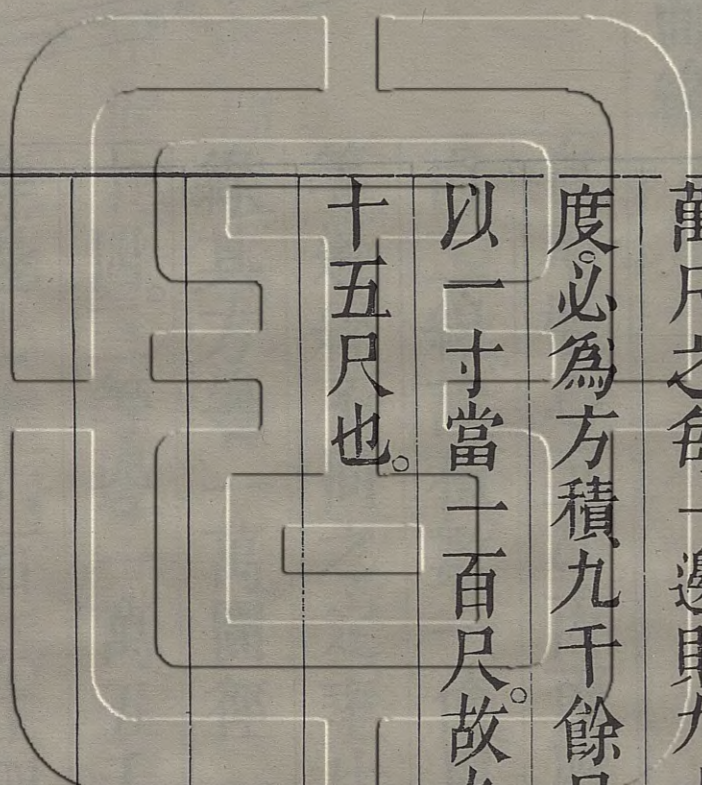 萬尺之每一邊則九
度。必為方積九千餘
以一寸當一百尺。故
十五尺也。